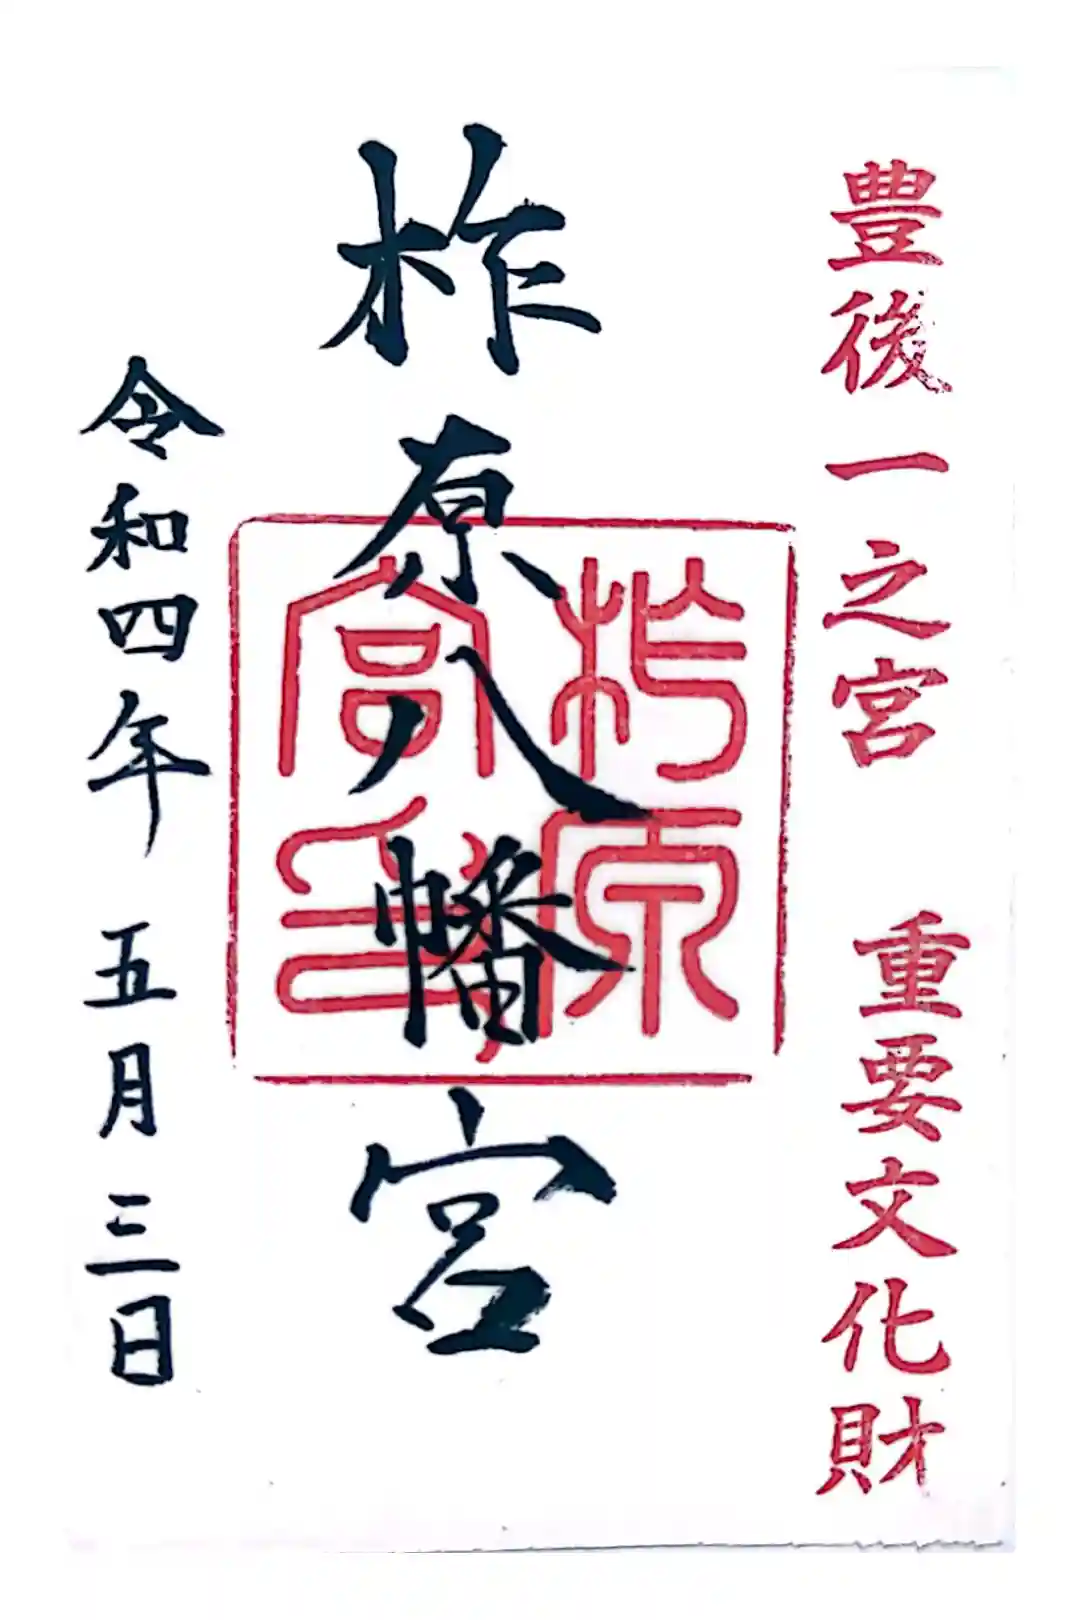 豊後一之宮 重要文化財
柞原八幡宮
柞原宮印
令和四年 五月 三日